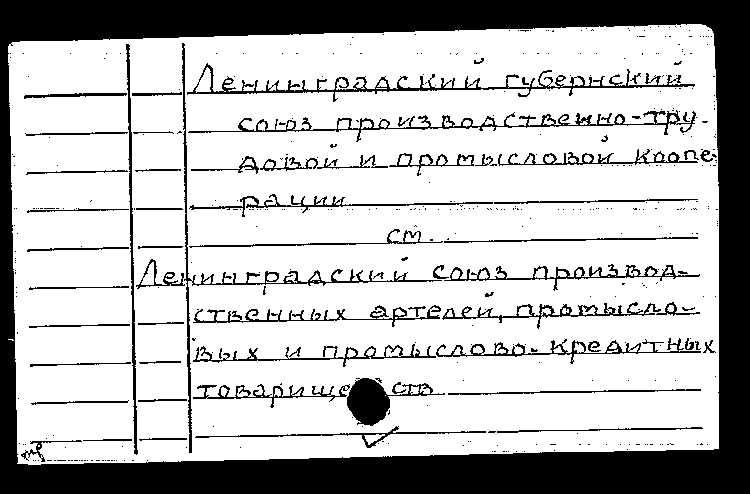 Ленинградский губернский
союз производственно-тру-
довой и промысловой коопе-
рации
см.
Ленинградский союз производ-
ственных артелей, промысло-
вых и промыслово-кредитных
товариществ